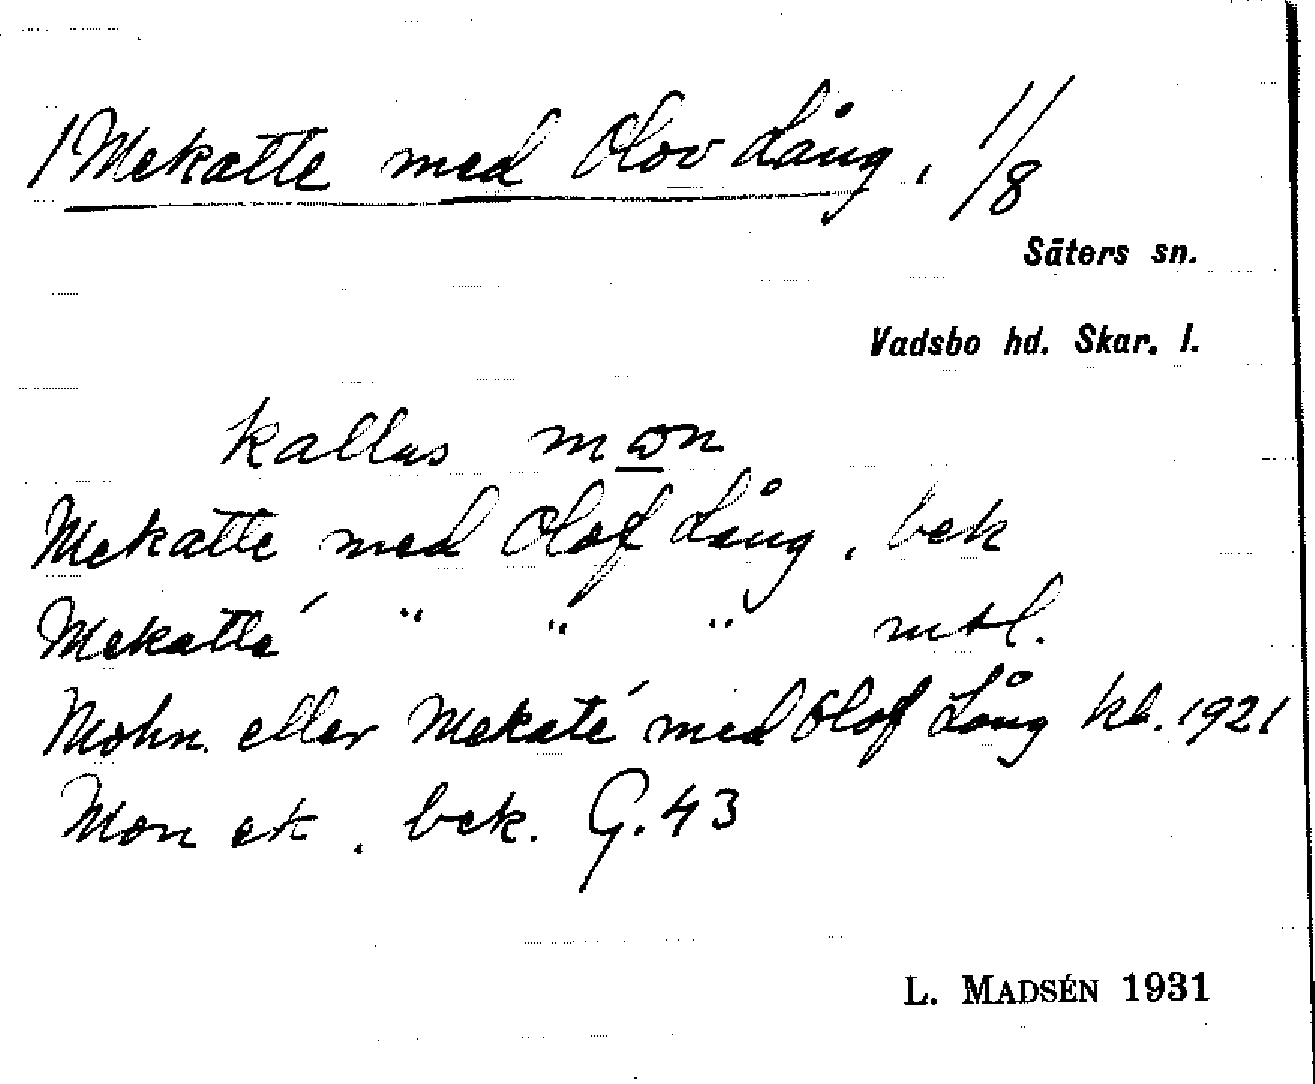 /Mekatte med Olov Lång, 1/8
Säters sn.
Vadsbo hd. Skar. l.
kallas mɷn
Mekatte med Olof Lång, bek
Mekatté " " " mtl.
Mohn eller Mekaté med Olof Lång kb. 1921
Mon ek. bek. G. 43
L. MADSÉN 1931